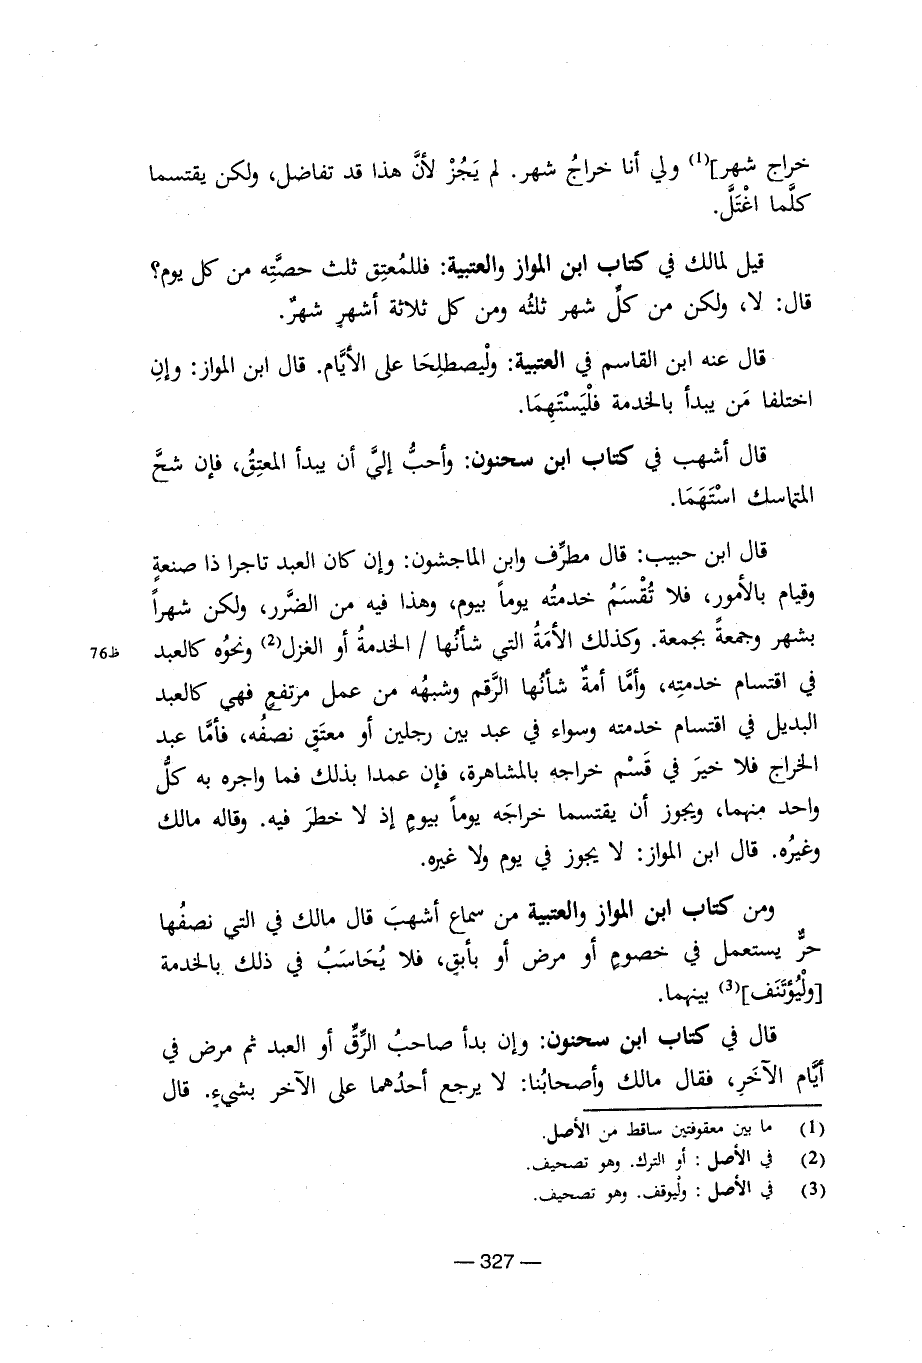 خراج شهر]⁽¹⁾ ولي أنا خراجُ شهر. لم يَجُزْ لأنَّ هذا قد تفاضل، ولكن يقتسما
كلَّما اغْتَلَّ.
قيل لمالك في كتاب ابن المواز والعتبية: فللمُعتِق ثلث حصَّتِه من كل يوم؟
قال: لا، ولكن من كلِّ شهر ثلثُه ومن كل ثلاثة أشهرٍ شهرٌ.
قال عنه ابن القاسم في العتبية: ولْيصطلِحَا على الأيَّام. قال ابن المواز: وإنِ
اختلفا مَن يبدأ بالخدمة فلْيَسْتَهِمَا.
قال أشهب في كتاب ابن سحنون: وأحبُّ إليَّ أن يبدأ المعتِقُ، فإن شحَّ
المتماسك اسْتَهَمَا.
قال ابن حبيب: قال مطرِّف وابن الماجشون: وإن كان العبد تاجرا ذا صنعةٍ
وقيام بالأمور، فلا تُقْسَمُ خدمتُه يوماً بيوم، وهذا فيه من الضَّرر، ولكن شهراً
بشهر وجمعةً بجمعة. وكذلك الأمَةُ التي شأنُها / الخدمةُ أو الغزل⁽²⁾ ونحوُه كالعبد
ظ76
في اقتسام خدمتِه، وأمَّا أمةٌ شأنُها الرَّقم وشبهُه من عمل مرتفعٍ فهي كالعبد
البديل في اقتسام خدمته وسواء في عبد بين رجلين أو معتَقٍ نصفُه، فأمَّا عبد
الخراج فلا خيرَ في قَسْم خراجه بالمشاهرة، فإن عمدا بذلك فما واجره به كلُّ
واحد منهما، ويجوز أن يقتسما خراجَه يوماً بيومٍ إذ لا خطرَ فيه. وقاله مالك
وغيرُه. قال ابن المواز: لا يجوز في يوم ولا غيره.
ومن كتاب ابن المواز والعتبية من سماع أشهبَ قال مالك في التي نصفُها
حرٌّ يستعمل في خصومٍ أو مرض أو بأبقٍ، فلا يُحَاسَبُ في ذلك بالخدمة
[ولْيُؤتَنَف]⁽³⁾ بينهما.
قال في كتاب ابن سحنون: وإن بدأ صاحبُ الرِّقِّ أو العبد ثم مرض في
أيَّام الآخَرِ، فقال مالك وأصحابُنا: لا يرجع أحدُهما على الآخر بشيءٍ. قال
(1) ما بين معقوفتين ساقط من الأصل.
(2) في الأصل : أو الترك. وهو تصحيف.
(3) في الأصل : ولْيوقف. وهو تصحيف.
— 327 —